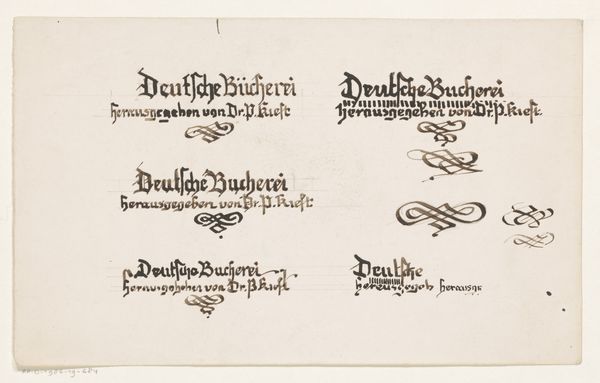 Deutsche Bücherei
herausgegehen von Dr. P. Kiest
Deutsche Bucherei
herausgegeben von Dr. P. Kiest
Deutsche Bucherei
herausgehehen von Dr. P. Kiest
Deutsche Bucherei
herausgegehen von Dr. P. Kiest.
Deutsche
herausgegeb herausge